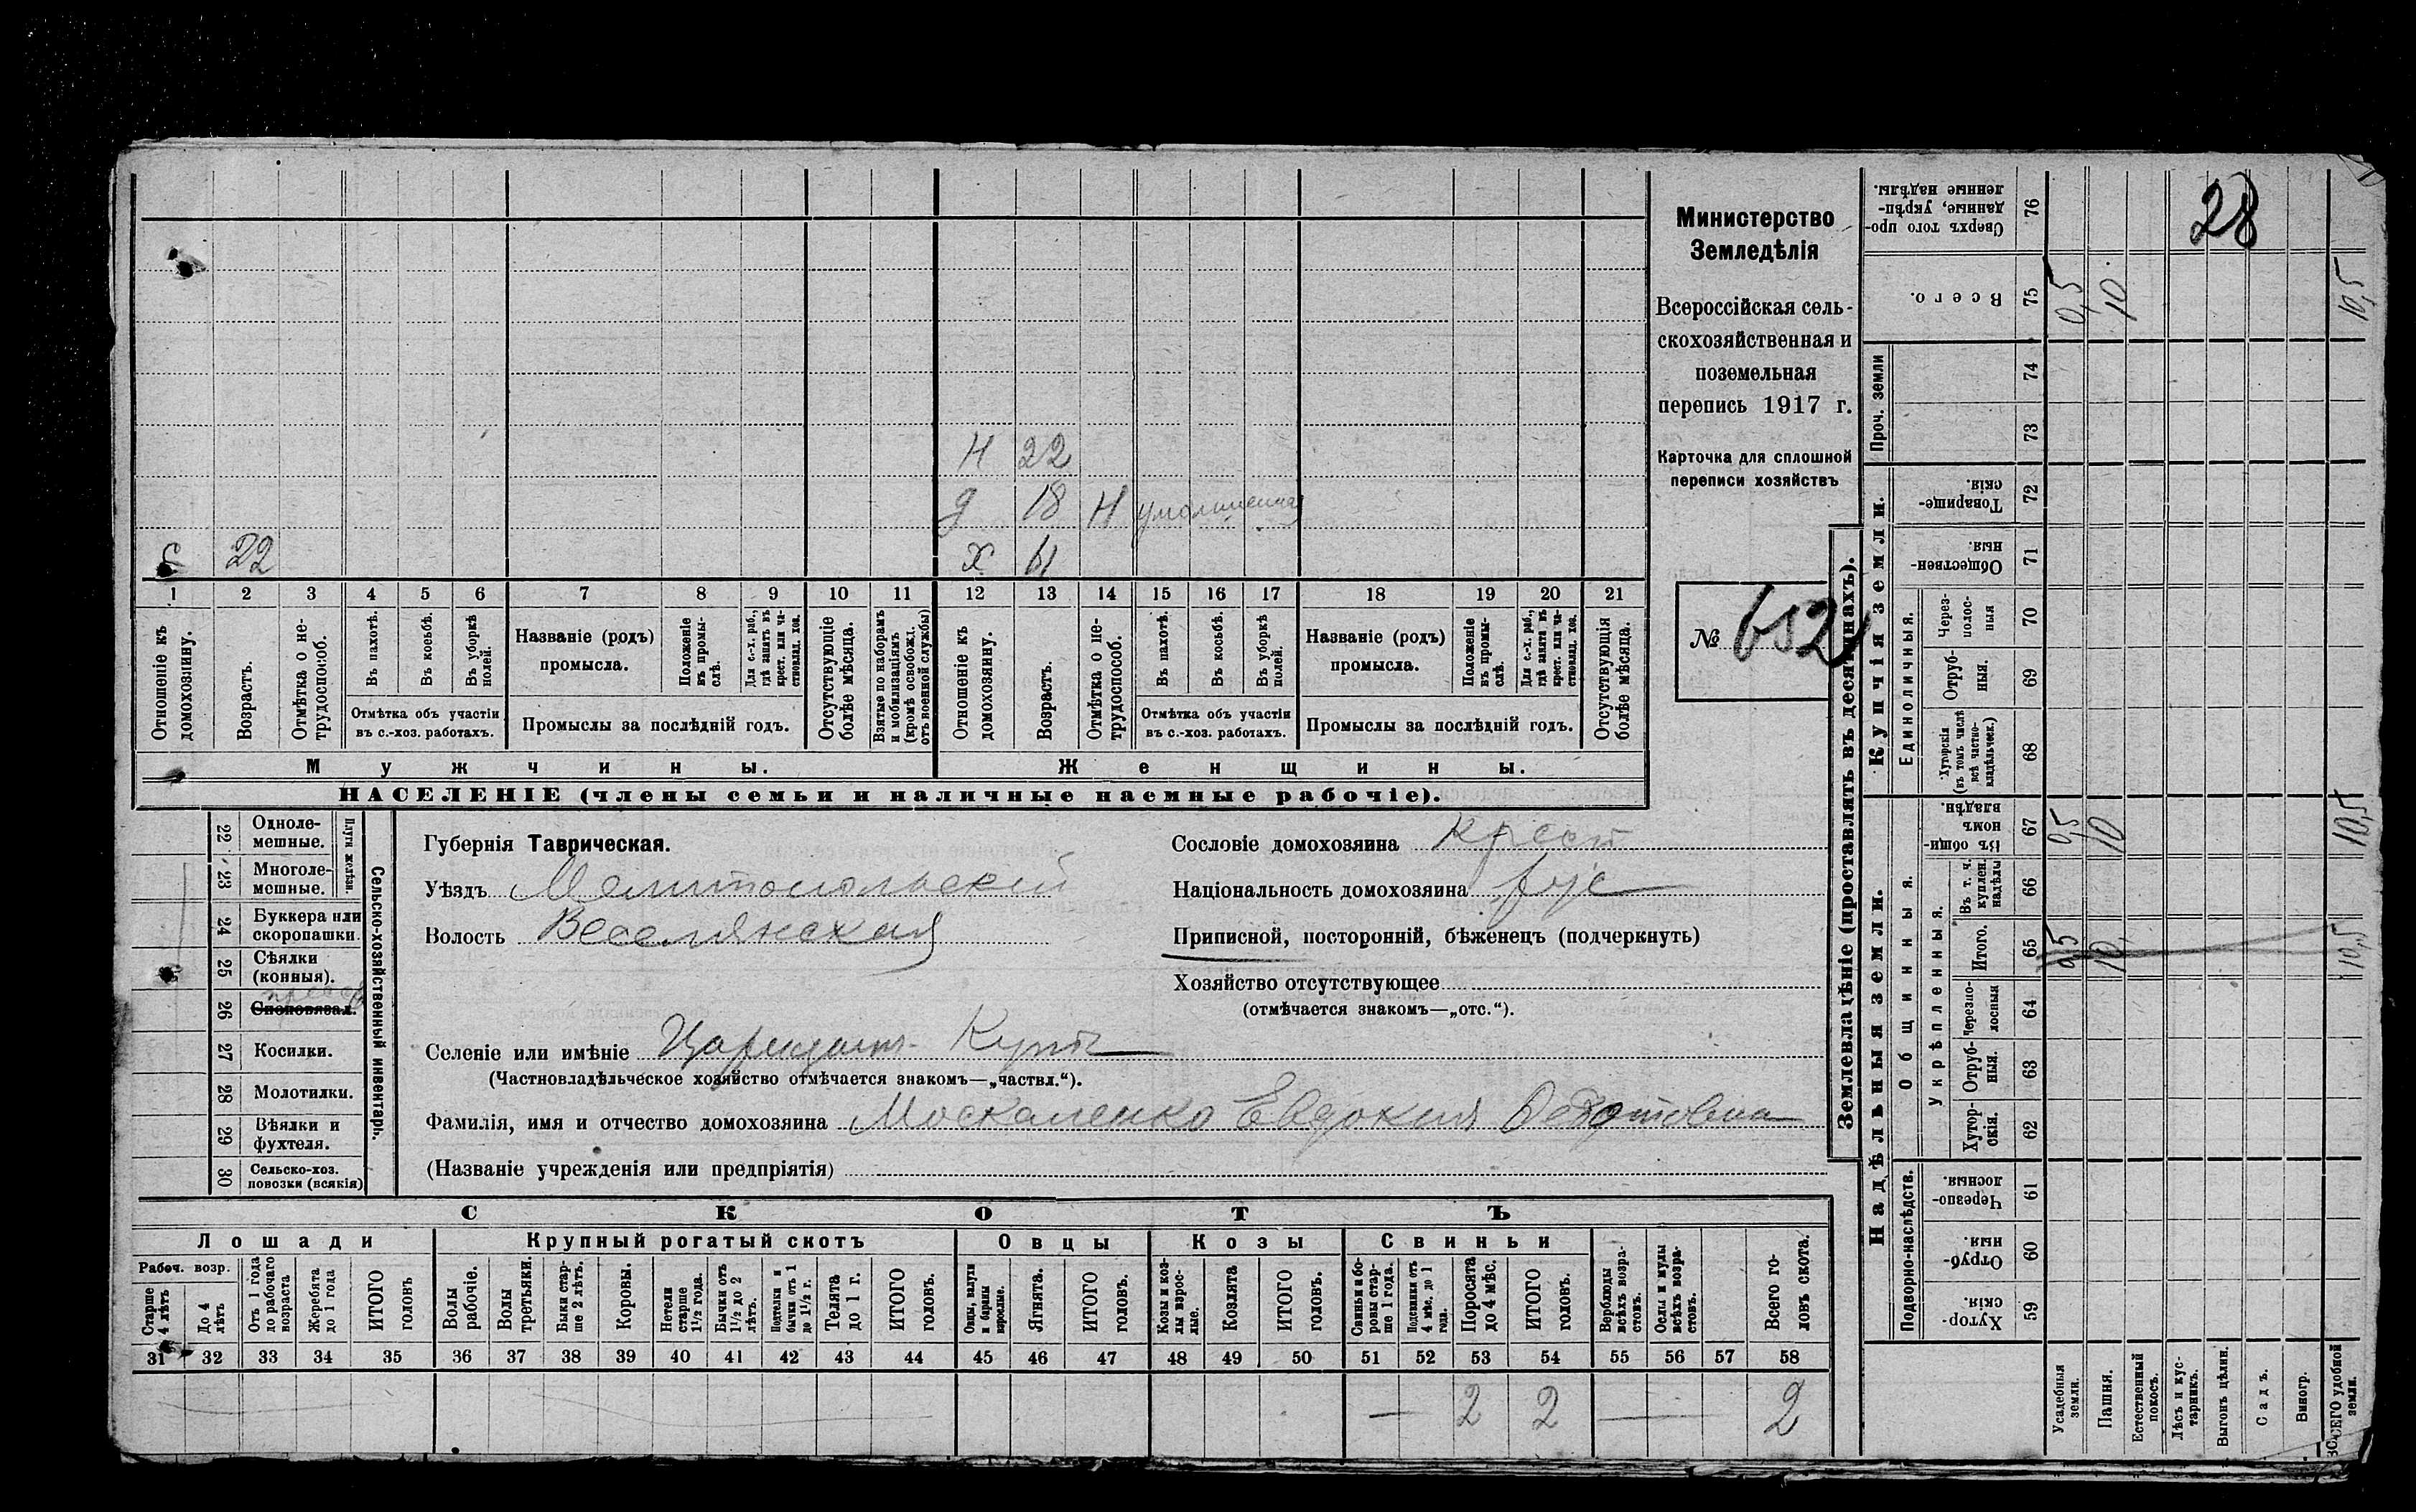 Министерство
Земледѣлія
Всероссійская сель-
скохозяйственная и
поземельная
перепись 1917 г.
Карточка для сплошной
переписи хозяйствъ
№ 652
28
Н 22
д 18 Н умалишенная
с 22 х 61
1 2 3 4 5 6 7 8 9 10 11 12 13 14 15 16 17 18 19 20 21
Отношеніе къ домохозяину.
Возрастъ.
Отмѣтка о не-трудоспособ.
Въ пахотѣ.
Въ косьбѣ.
Въ уборкѣ полей.
Отмѣтка объ участіи
въ с.-хоз. работахъ.
Названіе (родъ)
промысла.
Положеніе въ промы-слѣ.
Для с.-х. раб., гдѣ занятъ въ крест. или ча-стновлад. хоз.
Промыслы за послѣдній годъ.
Отсутствующіе болѣе мѣсяца.
Взятые по наборамъ и мобилизаціямъ (кромѣ освобожд. отъ военной службы)
Отношеніе къ домохозяину.
Возрастъ.
Отмѣтка о не-трудоспособ.
Въ пахотѣ.
Въ косьбѣ.
Въ уборкѣ полей.
Отмѣтка объ участіи
въ с.-хоз. работахъ.
Названіе (родъ)
промысла.
Положеніе въ промы-слѣ.
Для с.-х. раб., гдѣ занята въ крест. или ча-стновлад. хоз.
Промыслы за послѣдній годъ.
Отсутствующія болѣе мѣсяца.
Мужчины. Женщины.
НАСЕЛЕНІЕ (члены семьи и наличные наемные рабочіе).
Сельско-хозяйственный инвентарь.
Плуги желѣзн.
22 Одноле-мешные.
23 Многоле-мешные.
24 Буккера или скоропашки.
25 Сѣялки (конныя).
26 Сноповязал.
27 Косилки.
28 Молотилки.
29 Вѣялки и фухтеля.
30 Сельско-хоз. повозки (всякія)
Губернія Таврическая.
Уѣздъ Мелитопольскій
Волость Веселянская
Сословіе домохозяина Крест
Національность домохозяина рус
Приписной, посторонній, бѣженецъ (подчеркнуть)
Хозяйство отсутствующее
(отмѣчается знакомъ—„отс.“).
Селеніе или имѣніе Цареидаръ-Кутъ
(Частновладѣльческое хозяйство отмѣчается знакомъ—„частвл.“).
Фамилія, имя и отчество домохозяина Москаленко Евдокия Федотовна
(Названіе учрежденія или предпріятія)
СКОТЪ
Лошади Крупный рогатый скотъ Овцы Козы Свиньи
Рабоч. возр.
Старше 4 лѣтъ
До 4 лѣтъ
Отъ 1 года до рабочаго возраста
Жеребята до 1 года
ИТОГО головъ
Волы рабочіе.
Волы третьяки.
Быки стар-ше 2 лѣтъ.
Коровы.
Нетели старше 1½ года.
Бычки отъ 1½ до 2 лѣтъ.
Подтелки и бычки отъ 1 до 1½ г.
Телята до 1 г.
ИТОГО головъ.
Овцы, валухи и бараны взрослые.
Ягнята.
ИТОГО головъ.
Козы и коз-лы взрос-лые.
Козлята
ИТОГО головъ.
Свиньи и бо-ровы стар-ше 1 года.
Подсвинки отъ 4 мѣс. до 1 года.
Поросята до 4 мѣс.
ИТОГО головъ.
Верблюды всѣхъ возра-стовъ.
Ослы и мулы всѣхъ возра-стовъ.
Всего го-ловъ скота.
31 32 33 34 35 36 37 38 39 40 41 42 43 44 45 46 47 48 49 50 51 52 53 54 55 56 57 58
— 2 2 — 2
Землевладѣніе (проставлять въ десятинахъ).
Купчія земли.
Надѣльныя земли.
Проч. земли
Единоличныя.
Общинныя.
Укрѣпленныя.
Подворно-наслѣдств.
76 Сверхъ того про-данные, укрѣп-ленные надѣлы.
75 Всего. 0,5 10 10,5
74
73
72 Товарище-скія.
71 Обществен-ныя.
70 Через-полос-ныя
69 Отруб-ныя.
68 Хуторскія (въ томъ числѣ всѣ частно-владѣльческ.)
67 Въ общи-номъ владѣн. 0,5 10 10,5
66 Въ т. ч. куплен. надѣлы
65 Итого. 0,5 10 10,5
64 Черезпо-лосныя
63 Отруб-ныя.
62 Хутор-скія.
61 Черезпо-лосныя.
60 Отруб-ныя.
59 Хутор-скія.
Усадебныя земли.
Пашня.
Естественный покосъ.
Лѣсъ и кус-тарникъ.
Выгонъ цѣлин.
Садъ.
Виногр.
ВСЕГО удобной земли.